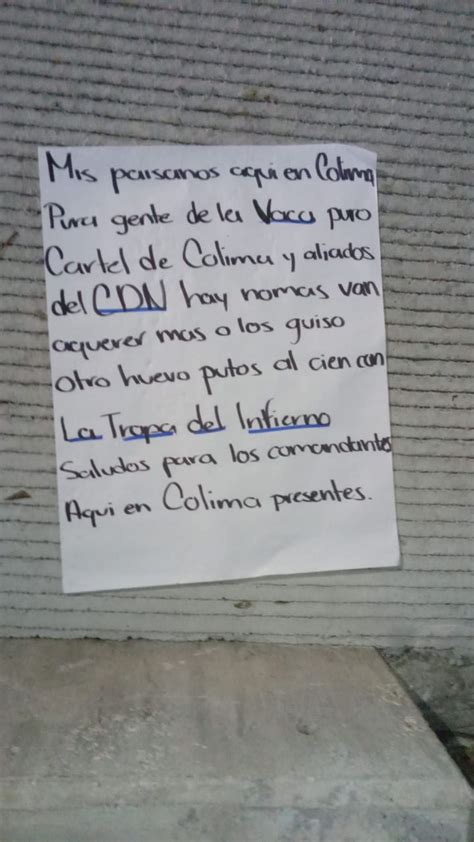 Mis paisanos aqui en Colima
Pura gente de la Vaca puro
Cartel de Colima y aliados
del CDN hay nomas van
aquerer mas o los guiso
otro huevo putos al cien con
La Tropa del Infierno
Saludos para los comandantes
Aqui en Colima presentes.